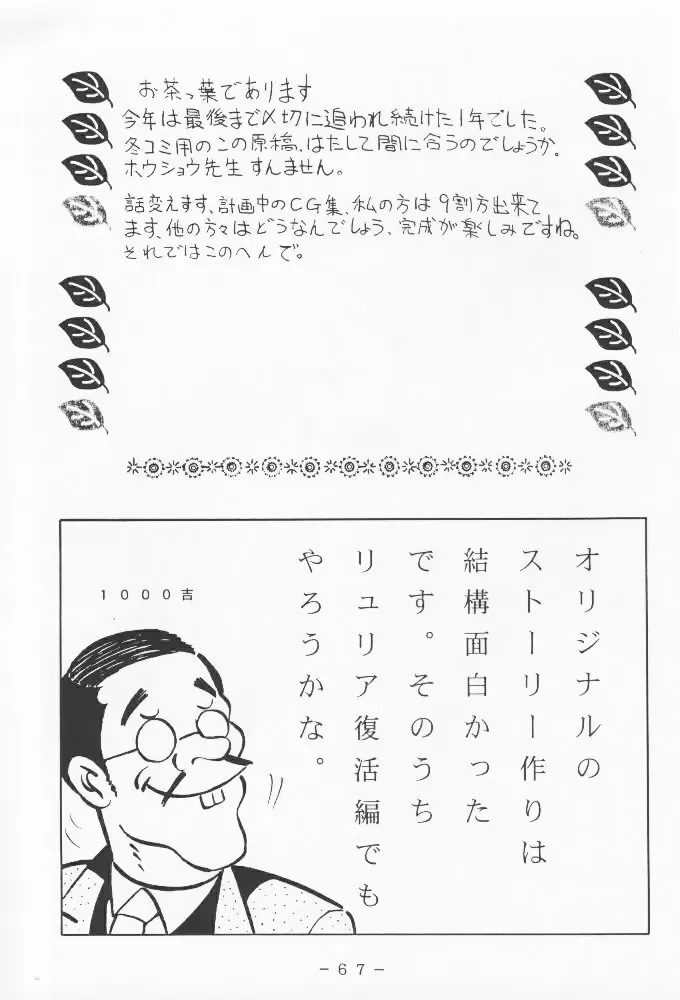 お茶っ葉であります
今年は最後まで〆切に追われ続けた1年でした。
冬コミ用のこの原稿、はたして間に合うのでしょうか。
ホウショウ先生すんません。
話変えます、計画中のCG集、私の方は9割方出来て
ます、他の方々はどうなんでしょう、完成が楽しみですね。
それではこのへんで。
オリジナルの
ストーリー作りは
結構面白かった
です。そのうち
リュリア復活編でも
やろうかな。
1000吉
－67－